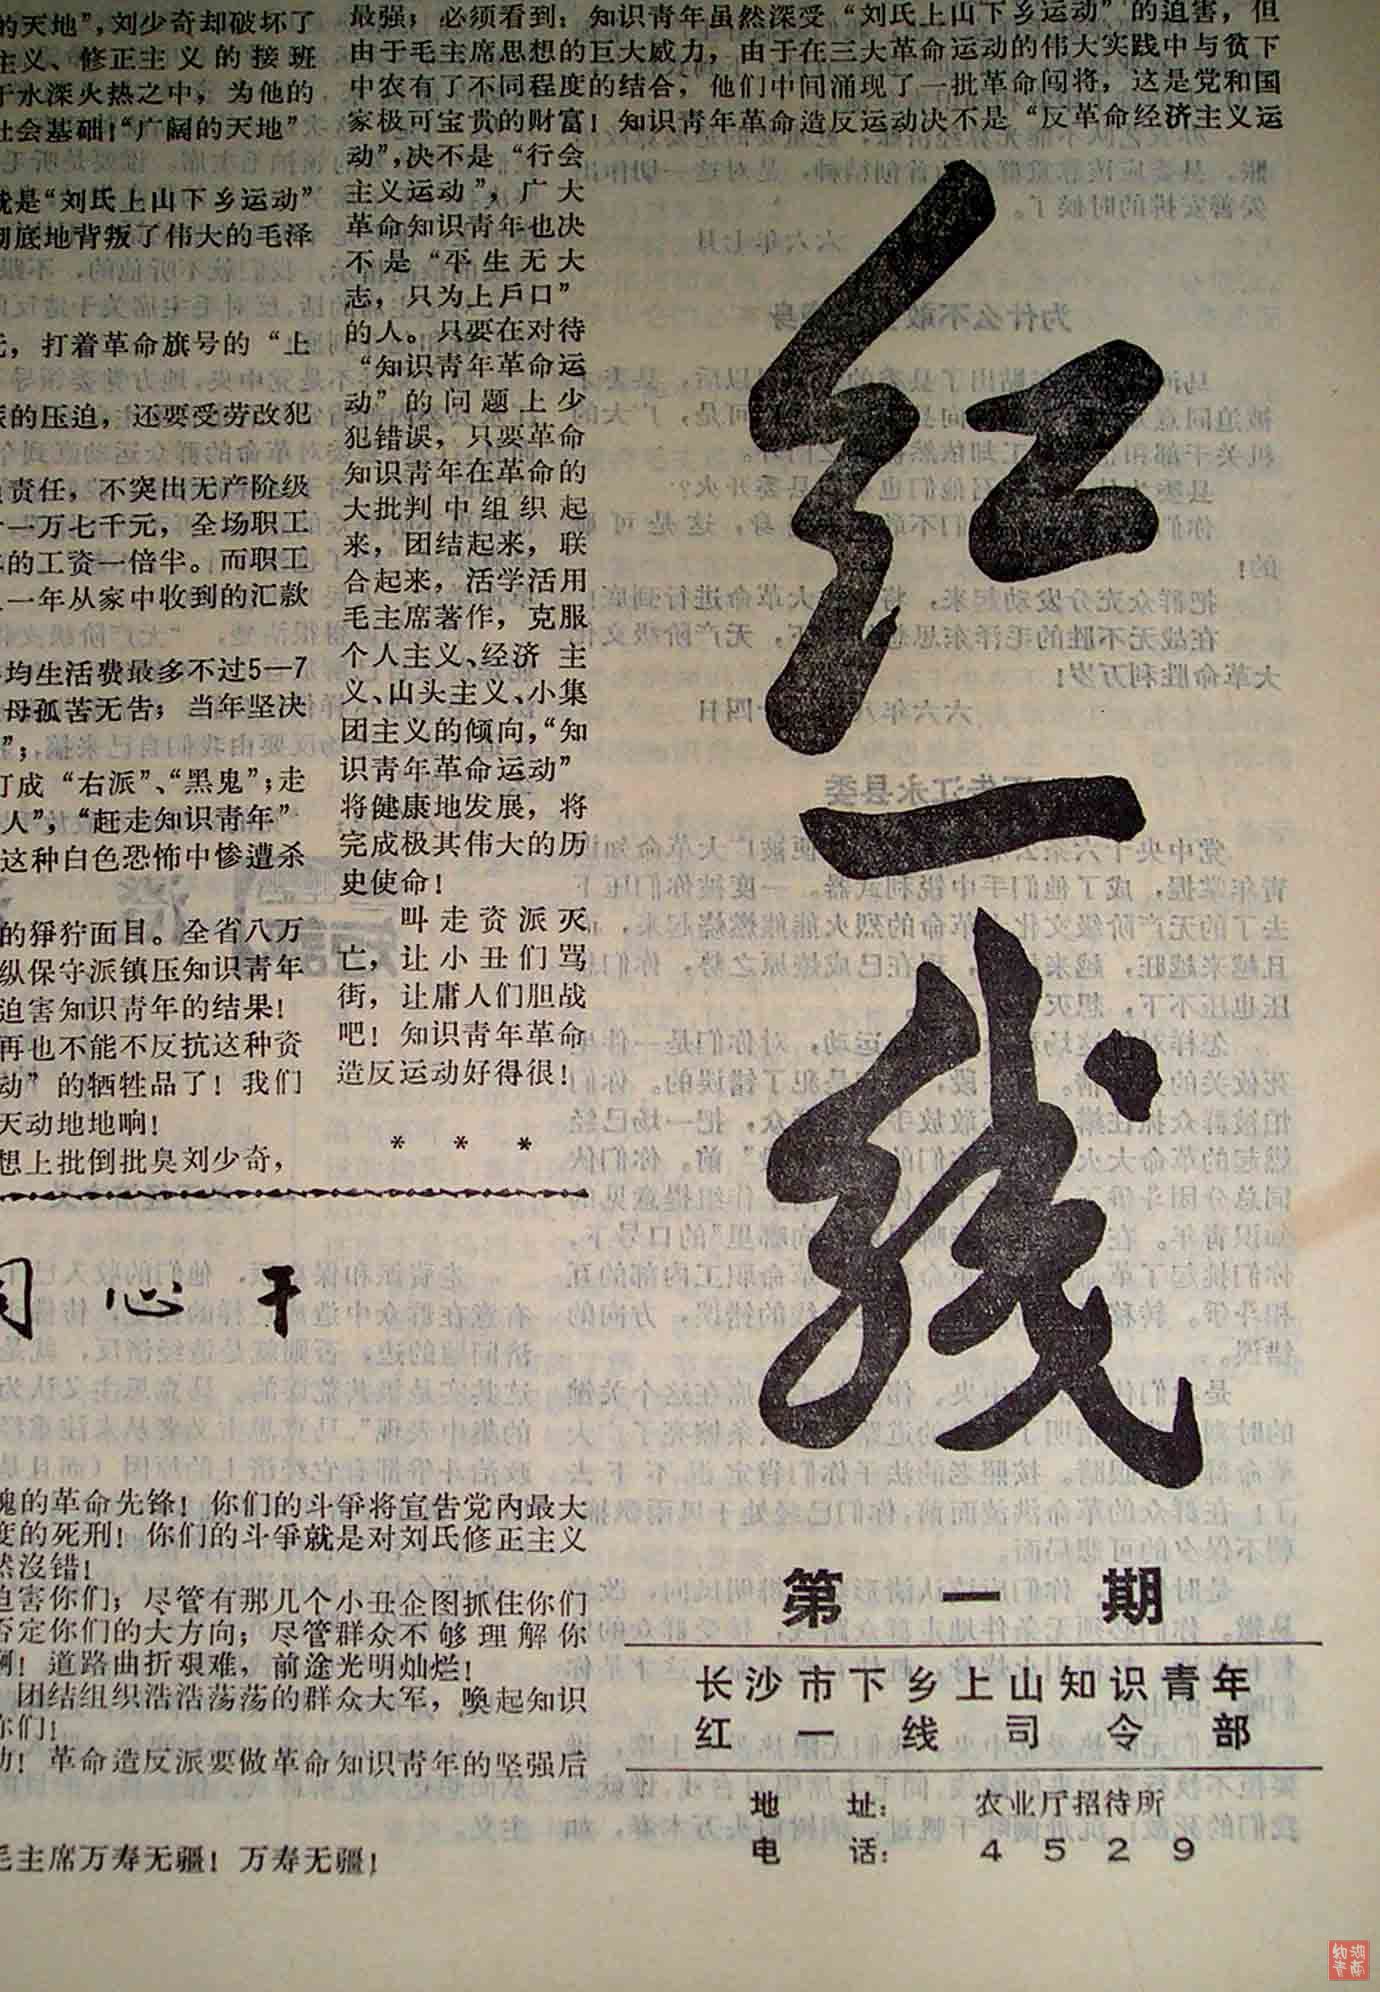 的天地”，刘少奇却破坏了
主义、修正主义的接班
于水深火热之中，为他的
社会基础！“广阔的天地”
就是“刘氏上山下乡运动”
彻底地背叛了伟大的毛泽
元，打着革命旗号的“上
族的压迫，还要受劳改犯
责任，不突出无产阶级
十一万七千元，全场职工
的工资一倍半。而职工
一年从家中收到的汇款
均生活费最多不过5—7
母孤苦无告；当年坚决
”；
打成“右派”、“黑鬼”；走
人”，“赶走知识青年”
这种白色恐怖中惨遭杀
的狰狞面目。全省八万
纵保守派镇压知识青年
迫害知识青年的结果！
再也不能不反抗这种资
动”的牺牲品了！我们
天动地地响！
想上批倒批臭刘少奇，
最强；必须看到：知识青年虽然深受“刘氏上山下乡运动”的迫害，但
由于毛主席思想的巨大威力，由于在三大革命运动的伟大实践中与贫下
中农有了不同程度的结合，他们中间涌现了一批革命闯将，这是党和国
家极可宝贵的财富！知识青年革命造反运动决不是“反革命经济主义运
动”，决不是“行会
主义运动”，广大
革命知识青年也决
不是“平生无大
志，只为上戶口”
的人。只要在对待
“知识青年革命运
动”的问题上少
犯错误，只要革命
知识青年在革命的
大批判中组织起
来，团结起来，联
合起来，活学活用
毛主席著作，克服
个人主义、经济主
义、山头主义、小集
团主义的倾向，“知
识青年革命运动”
将健康地发展，将
完成极其伟大的历
史使命！
叫走资派灭
亡，让小丑们骂
街，让庸人们胆战
吧！知识青年革命
造反运动好得很！
* * *
同心干
魄的革命先锋！你们的斗爭将宣告党内最大
度的死刑！你们的斗爭就是对刘氏修正主义
然沒错！
迫害你们；尽管有那几个小丑企图抓住你们
否定你们的大方向；尽管群众不够理解你
啊！道路曲折艰难，前途光明灿烂！
团结组织浩浩荡荡的群众大军，喚起知识
你们！
动！革命造反派要做革命知识青年的坚强后
毛主席万寿无疆！万寿无疆！
红一线
第一期
长沙市下乡上山知识青年
红一线司令部
地址：农业厅招待所
电话：4529
湖南
知青